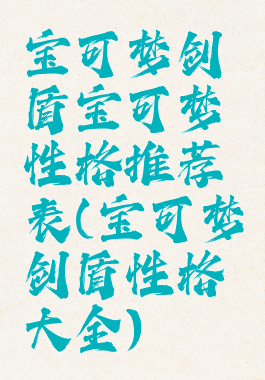 宝可梦剑
盾宝可梦
性格推荐
表(宝可梦
剑盾性格
大全)